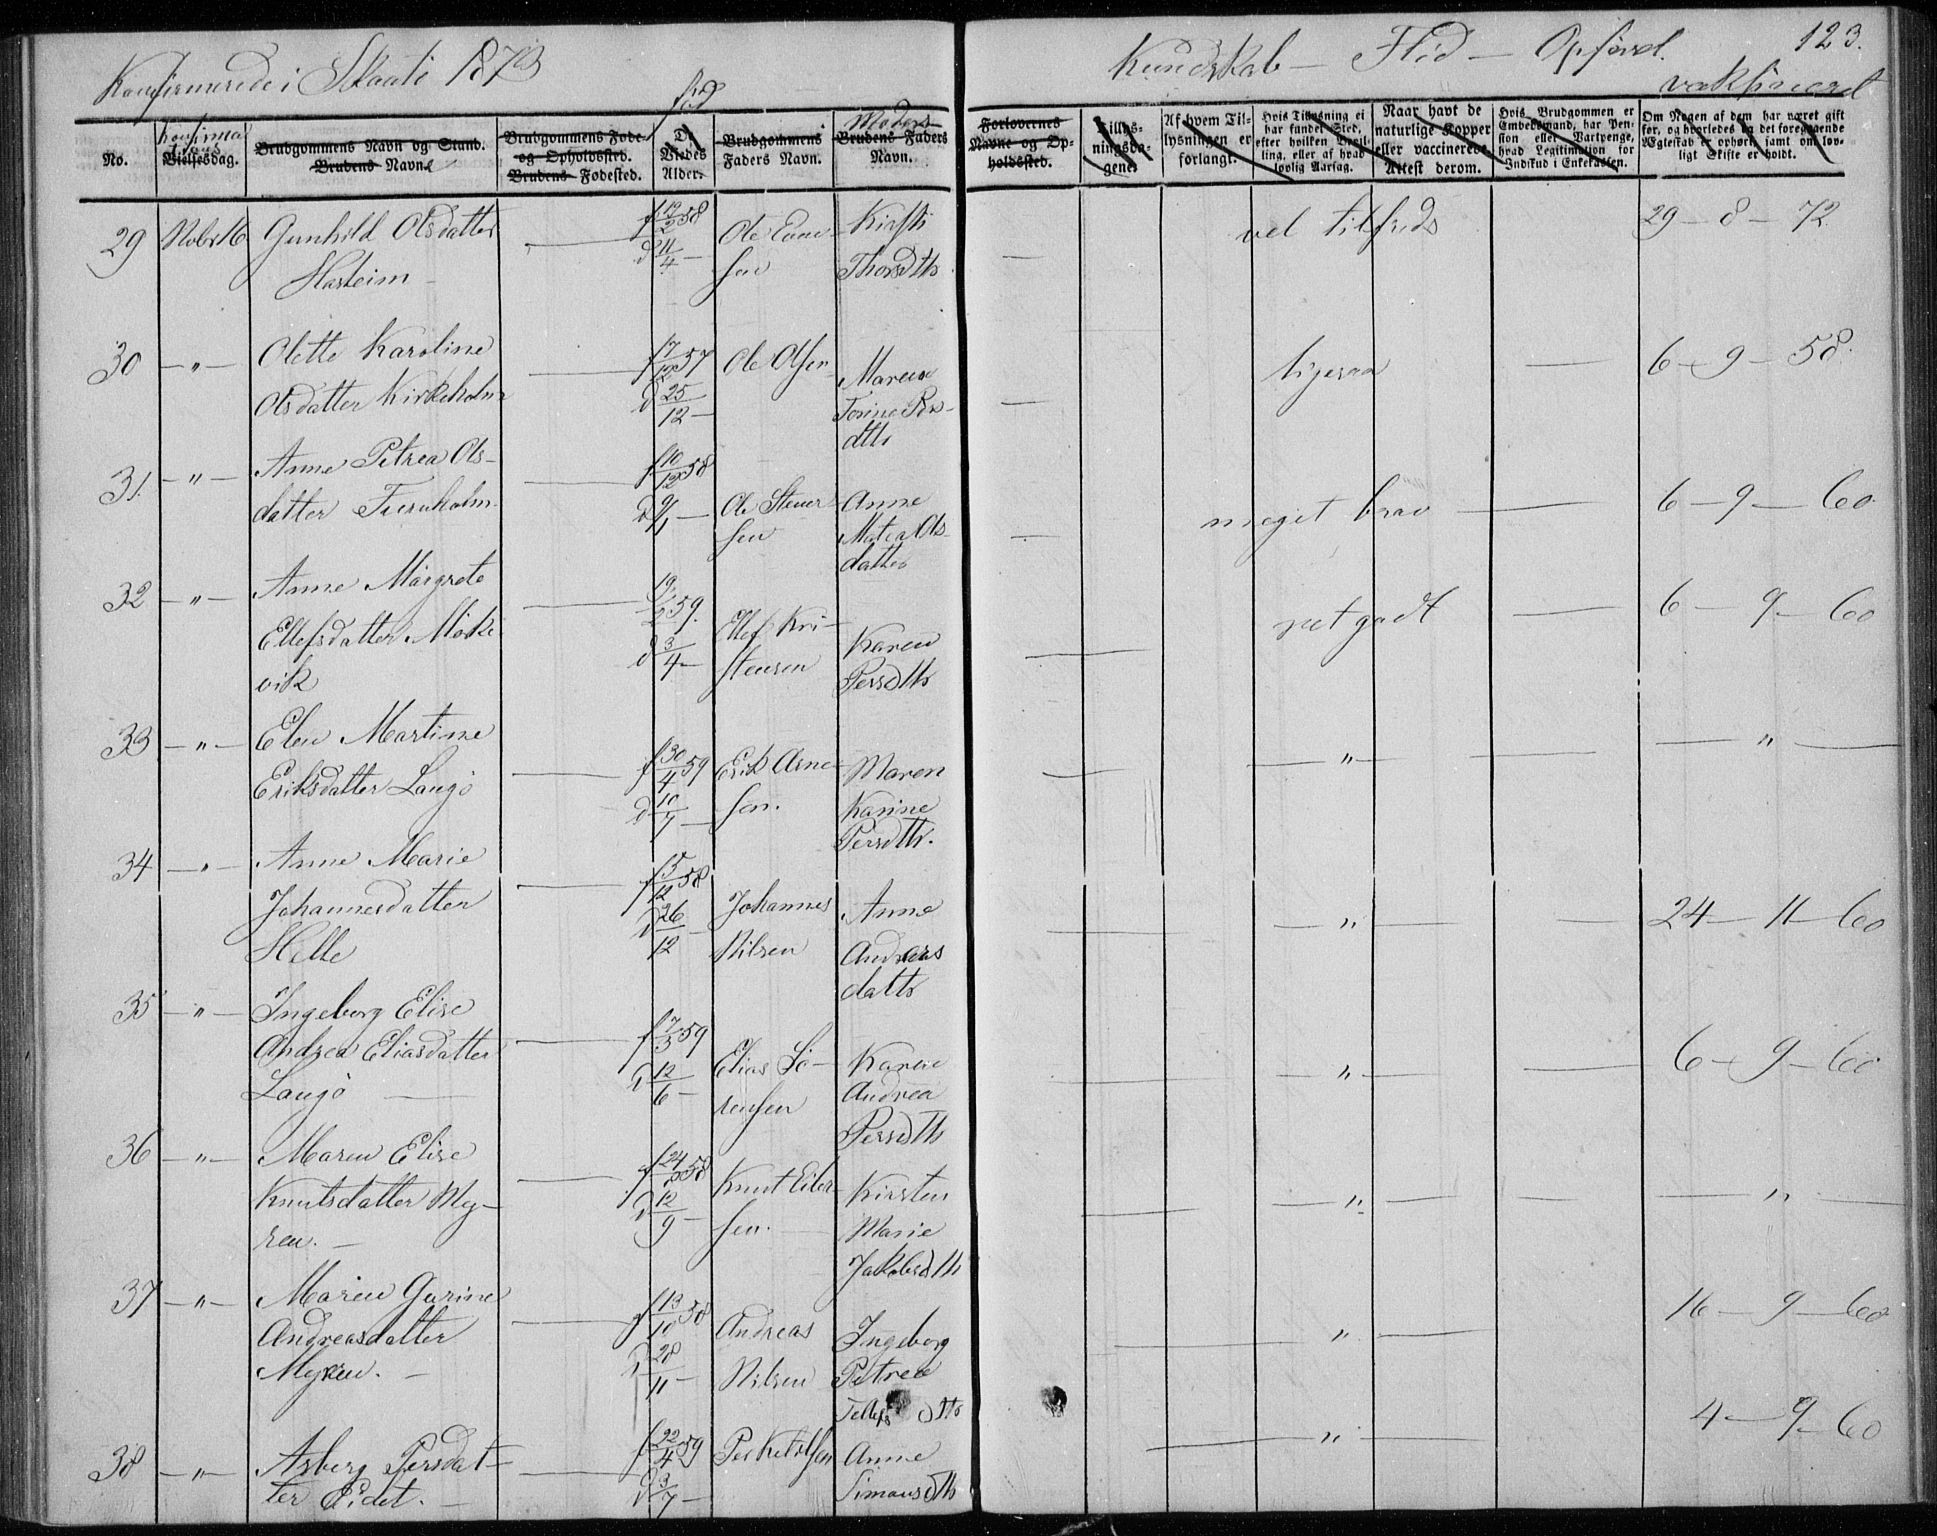 Konfirmerede i Skaatö 1873
Kundskab — Flid — Opförsel.
123.
född
vaksineret
No.
Konfirma
tions
Vielsesdag.
Brudgommens Navn og Stand.
Brudens Navn
Brudgommens Føde-
og Opholdssted.
Brudens Fødested.
De
Viedes
Alder.
Brudgommens
Faders Navn.
Moders
Brudens Faders
Navn.
Forlovernes
Navne og Op-
holdssted.
Tillys-
ningsda-
gene.
Af hvem Til-
lysningen er
forlangt.
Hvis Tillysning ei
har fundet Sted,
efter hvilken Bevil-
ling, eller af hvad
lovlig Aarsag.
Naar havt de
naturlige Kopper
eller vaccinerede.
Attest derom.
Hvis Brudgommen er
Embedsmand, har Pen-
sion eller Vartpenge,
hvad Legitimation for
Indskud i Enkekassen.
Om Nogen af dem har været gift
før, og hvorledes da det foregaaende
Ægteskab er ophørt, samt om lov-
ligt Skifte er holdt.
29 Nobr 16 Gunhild Olsdatter
Hasleim
f 19/2 58
d 11/4 —
Ole Even-
sen
Kirsti
Thorsdtr
vel tilfreds
29 — 8 — 72
30 — " — Olette Karoline
Olsdatter Kirkeholm
f 7/12 57
d 25/12 —
Ole Olsen
Maren
Torine Pers-
dttr
ligesaa
6 — 9 — 58.
31. — " — Anne Petrea Ols-
datter Furuholm
f 10/12 58
d 9/1 —
Ole Stener-
sen
Anne
Matea Ols-
datter
meget brav
6 — 9 — 60
32 — " — Anne Margrete
Ellefsdatter Möke-
vik
19/2 59.
d 3/4 —
Ellef Kri-
stensen
Karen
Persdtr
ret godt
6 — 9 — 60
33 — " — Elen Martine
Eriksdatter Langö
f 30/4 59
d 10/7 —
Erik Arne-
sen.
Maren
Karine
Persdtr.
— " —
— " —
34 — " — Anne Marie
Johannesdatter
Helle
f 5/12 58
d 26/12 —
Johannes
Nilsen
Anne
Andreas
datter
— " —
24 — 11 — 60
35 — " — Ingeborg Elise
Andrea Eliasdatter
Langö
f 7/5 59
d 12/6 —
Elias Sö-
rensen
Karen
Andrea
Persdtr
"
6 — 9 — 60
36 — " — Maren Elise
Knutsdatter My-
ren. —
58
d 12/9 —
Knut Eiler-
sen.
Kirsten
Marie
Jakobsdtr
"
"
37 — " — Maren Gurine
Andreasdatter
Myren. —
f 13/10 58
d 28/11 —
Andreas
Nilsen
Ingeborg
Petrea
Tellefsdtr
"
16 — 9 — 60
38 — " — Asberg Persdat-
ter Eidet. —
f 22/4 59
d 3/7 —
Per Ketilsen
Anne
Simonsdtr
"
4 — 9 — 60